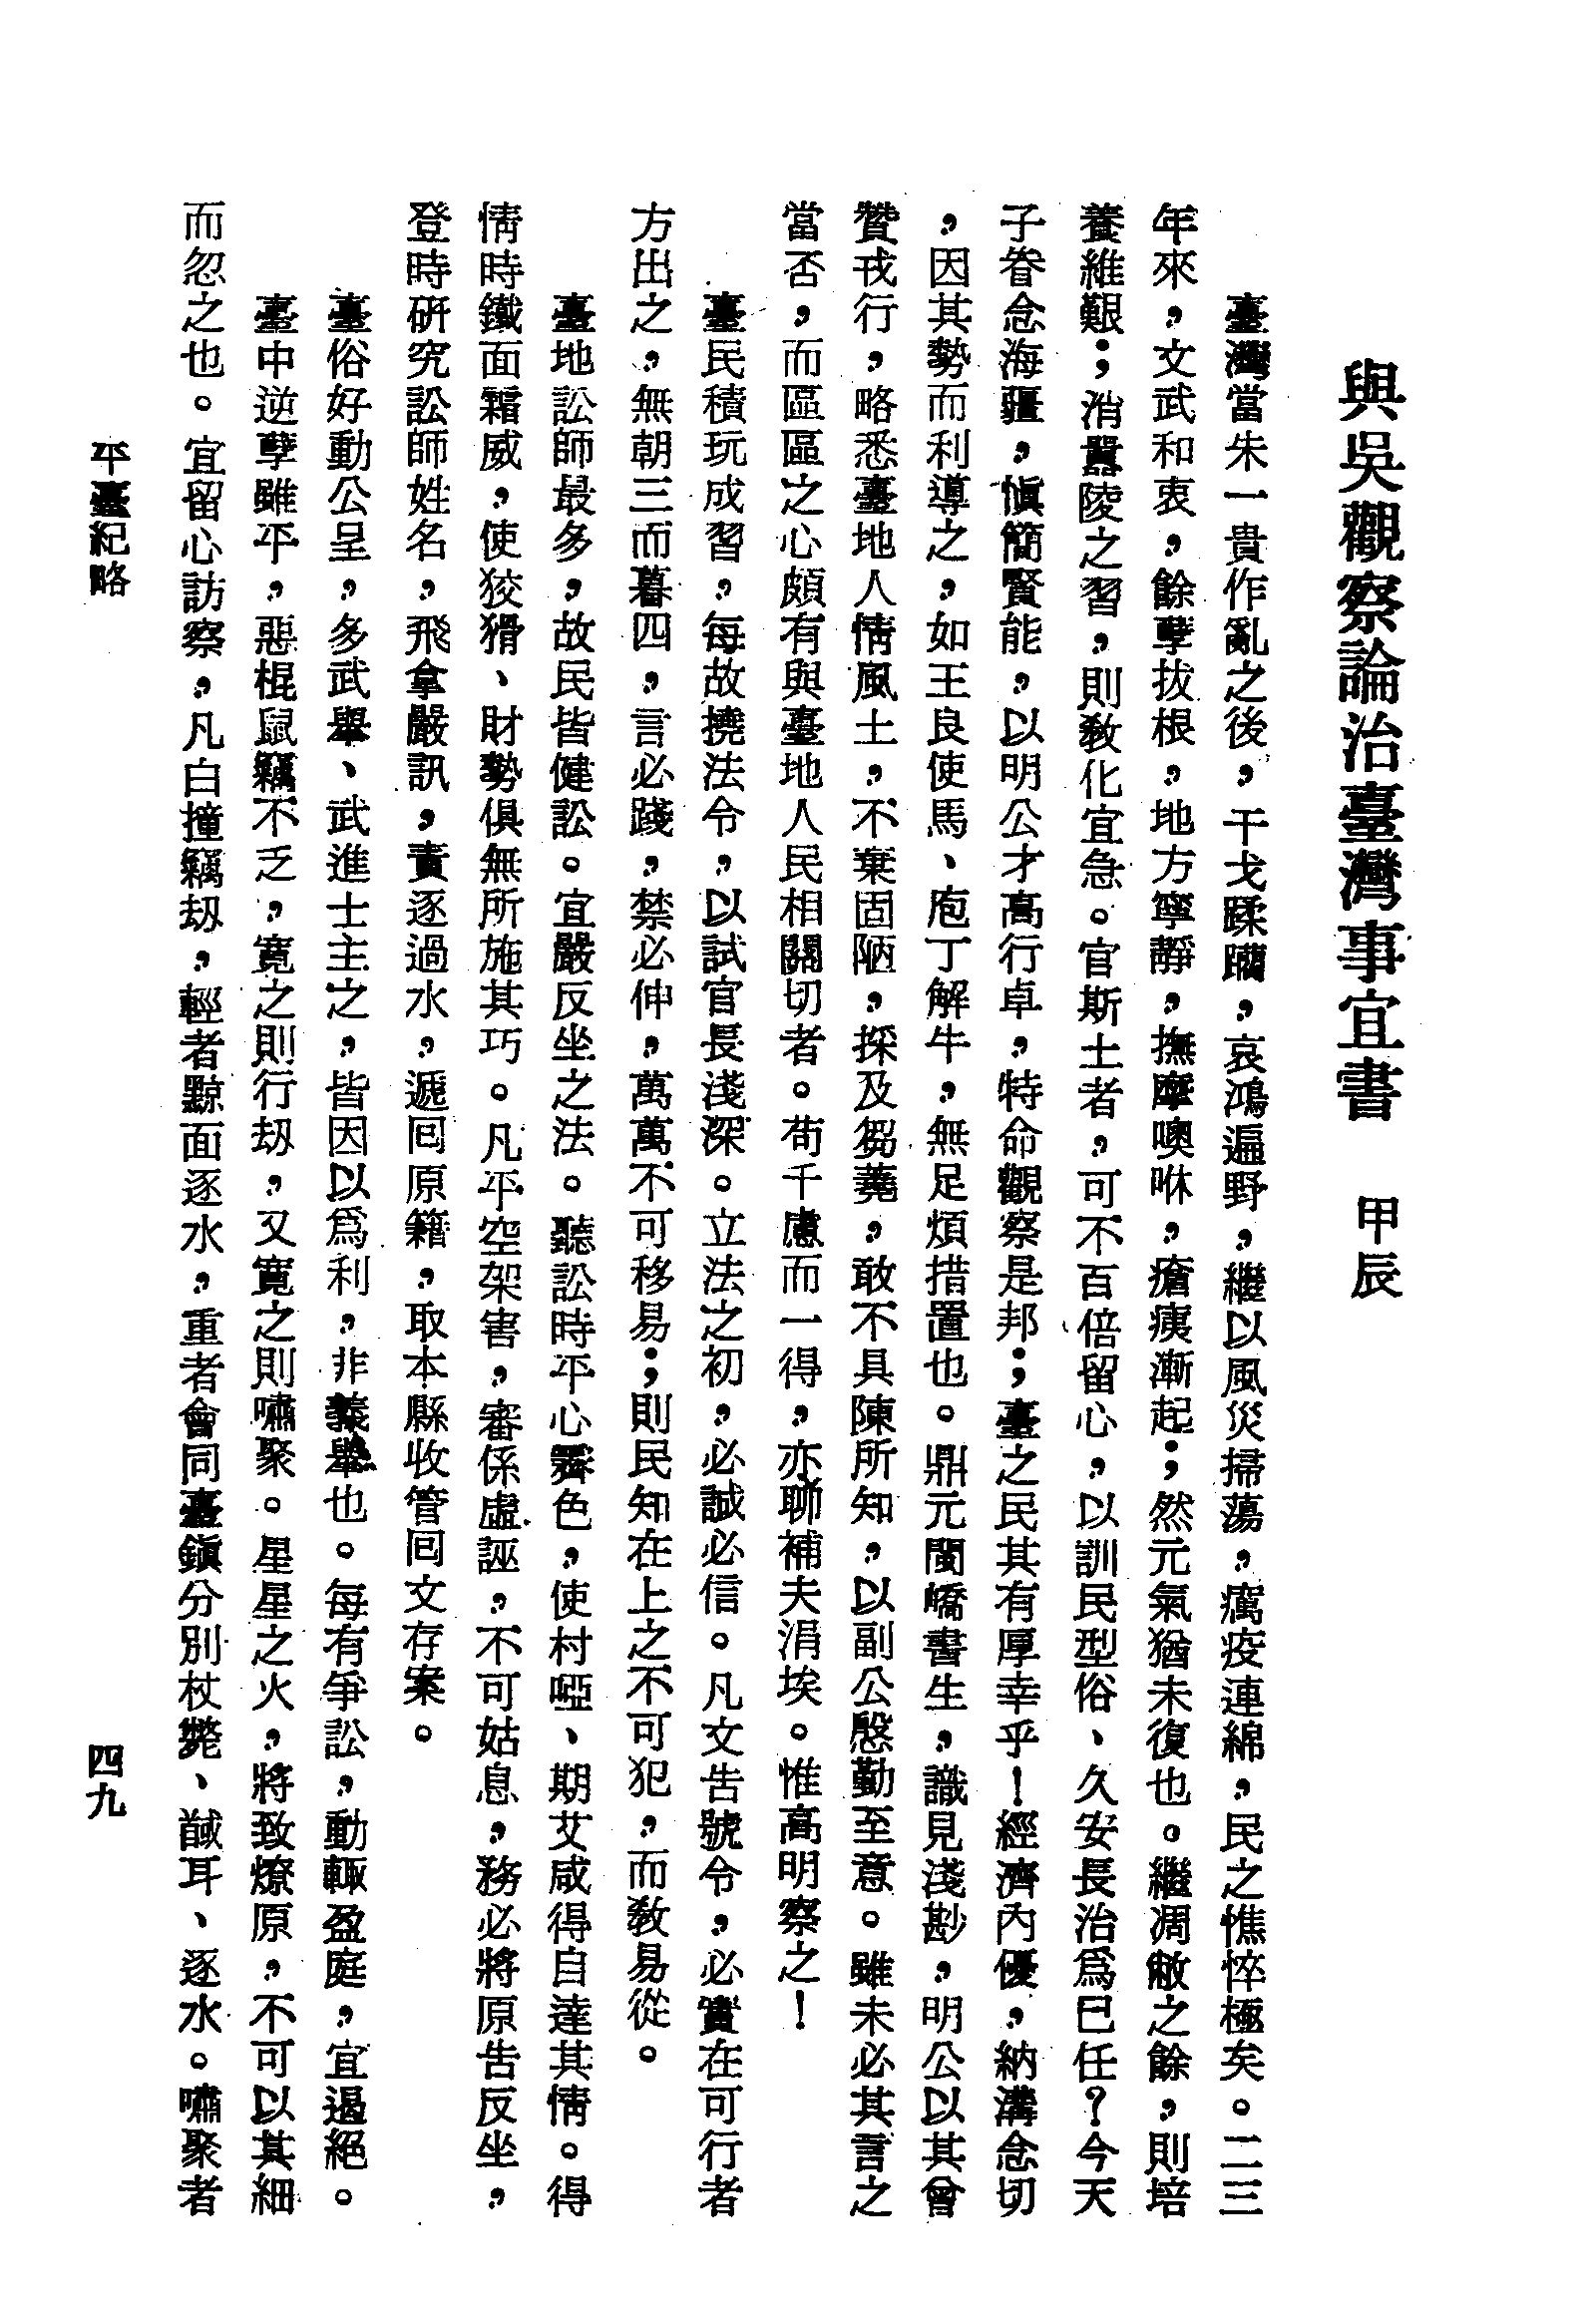 與吳觀察論治臺灣事宜書　甲辰
臺灣當朱一貴作亂之後，干戈蹂躪，哀鴻遍野，繼以風災掃蕩，癘疫連綿，民之憔悴極矣。二三
年來，文武和衷，餘孽拔根，地方寧靜，撫摩噢咻，瘡痍漸起；然元氣猶未復也。繼凋敝之餘，則培
養維艱；消囂陵之習，則敎化宜急。官斯土者，可不百倍留心，以訓民型俗、久安長治爲已任？今天
子眷念海疆，愼簡賢能，以明公才高行卓，特命觀察是邦；臺之民其有厚幸乎！經濟內優，納溝念切
，因其勢而利導之，如王良使馬、庖丁解牛，無足煩措置也。鼎元閩嶠書生，識見淺尠，明公以其曾
贊戎行，略悉臺地人情風土，不棄固陋，採及芻蕘，敢不具陳所知，以副公慇勤至意。雖未必其言之
當否，而區區之心頗有與臺地人民相關切者。苟千慮而一得，亦聊補夫涓埃。惟高明察之！
臺民積玩成習，每故撓法令，以試官長淺深。立法之初，必誠必信。凡文告號令，必實在可行者
方出之，無朝三而暮四，言必踐，禁必伸，萬萬不可移易；則民知在上之不可犯，而敎易從。
臺地訟師最多，故民皆健訟。宜嚴反坐之法。聽訟時平心霽色，使村啞、期艾咸得自達其情。得
情時鐵面霜威，使狡猾、財勢俱無所施其巧。凡平空架害，審係虛誣，不可姑息，務必將原告反坐，
登時研究訟師姓名，飛拿嚴訊，責逐過水，遞囘原籍，取本縣收管囘文存案。
臺俗好動公呈，多武舉、武進士主之，皆因以爲利，非義舉也。每有爭訟，動輒盈庭，宜遏絕。
臺中逆孽雖平，惡棍鼠竊不乏，寬之則行刧，又寬之則嘯聚。星星之火，將致燎原，不可以其細
而忽之也。宜留心訪察，凡白撞竊刧，輕者黥面逐水，重者會同臺鎭分別杖斃、馘耳、逐水。嘯聚者
平臺紀略
四九